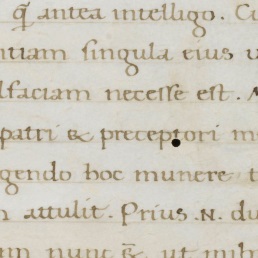 q̃ antea intelligo. Cu
ntiam singula eius u
lfaciam necesse est. A
patri & preceptori m
gendo hoc munere t
m attulit. Prius .N. du
m nunc ẽ ut mihi